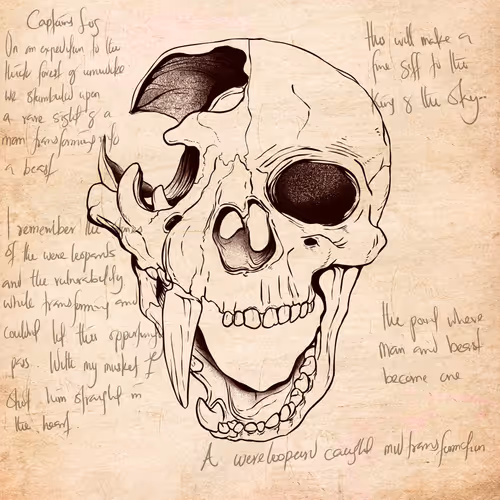 Captains log
On an expedition to the
thick forest of
we stumbled upon
a rare sight of a
man transforming into
a beast
I remember the
of the were leopards
and the vulnerability
while transforming and
couldn't let this opportunity
pass. With my musket I
shot him straight in
the heart.
this will make a
fine gift to the
King of the Sky...
the point where
man and beast
become one
A wereleopard caught mid transformation